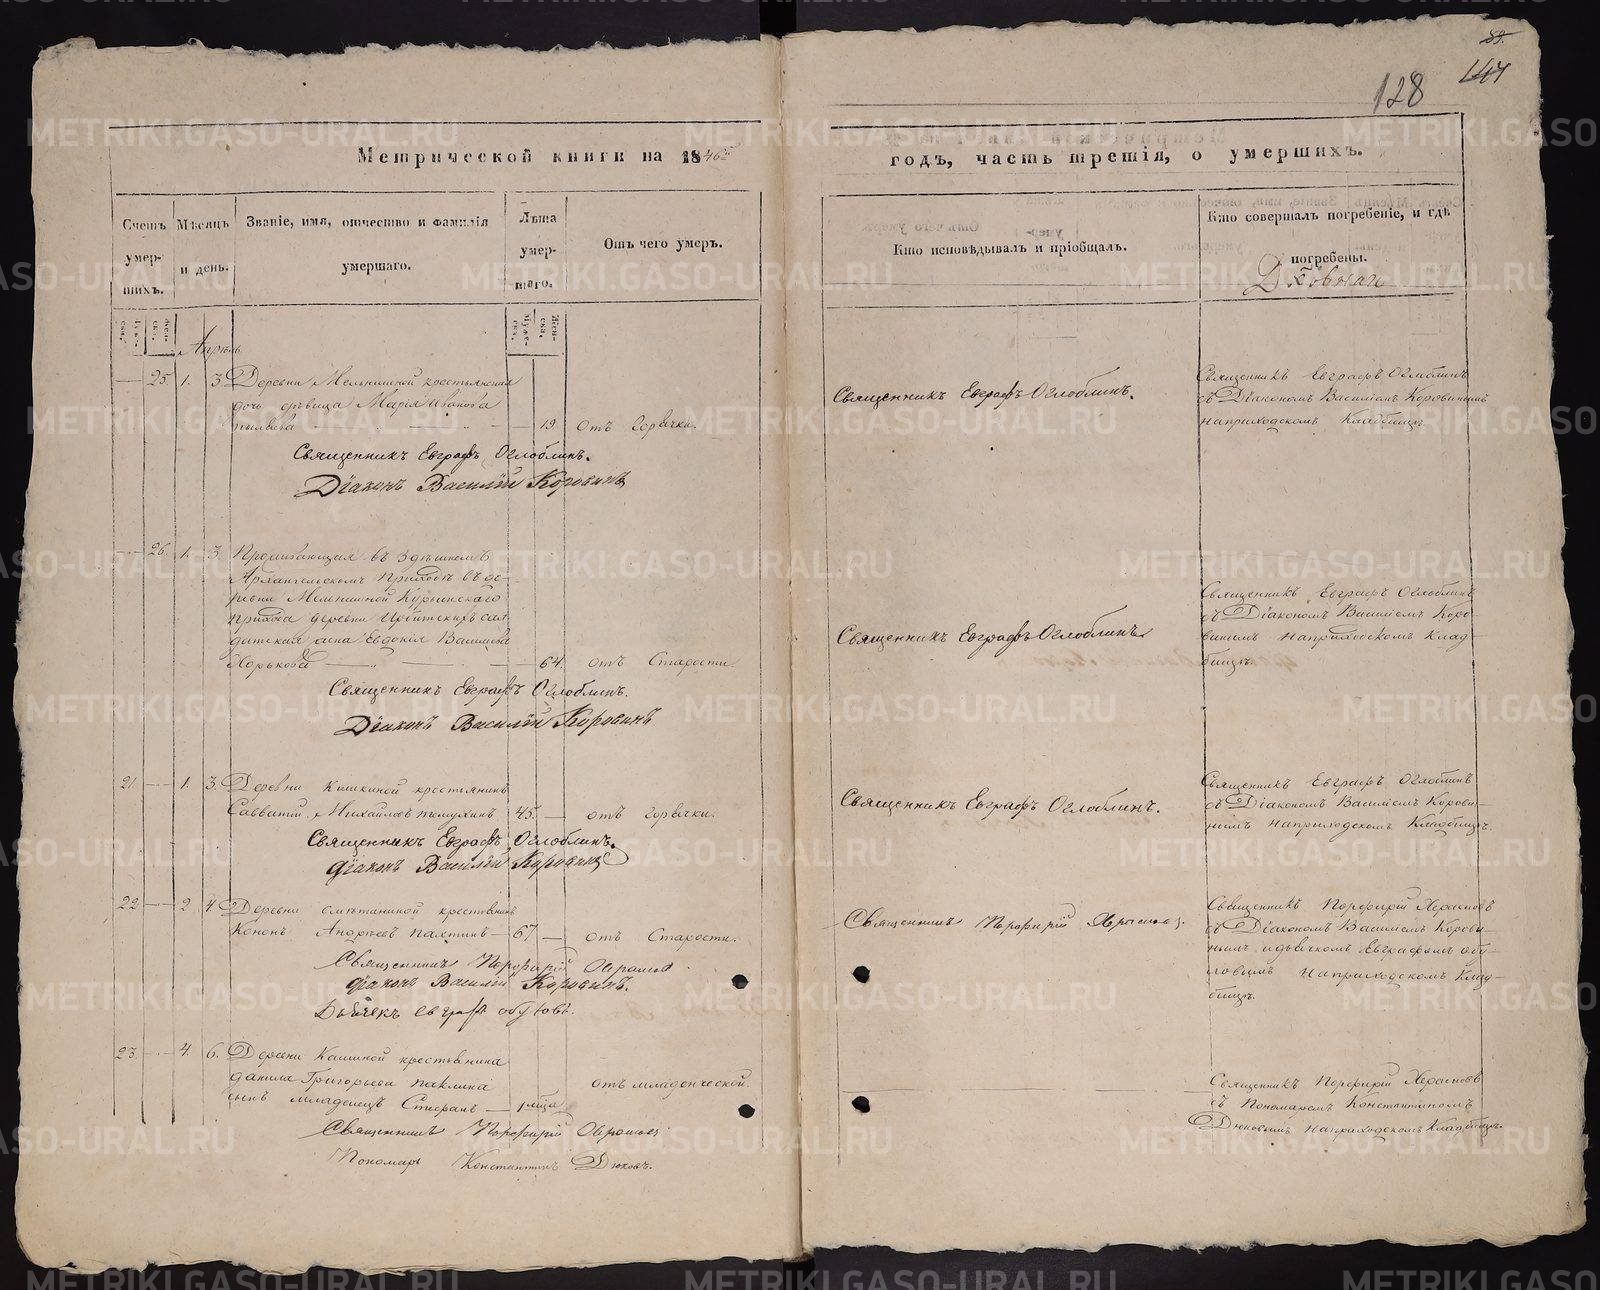 89.
144
128
Метрической книги на 1846й
годъ, часть третія, о умершихъ.
Счетъ умер-шихъ.
Мѣсяцъ и день.
Званіе, имя, отчество и фамилія умершаго.
Лѣта умер-шаго.
Отъ чего умеръ.
Кто исповѣдывалъ и пріобщалъ.
Кто совершалъ погребеніе, и гдѣ погребены.
Апрѣль
25. 1. 3. Деревни Мельнишной крестьянская
дочь дѣвица Марія Иванова
19. отъ горячки.
Священникъ Евграфъ Оглоблинъ.
Діаконъ Василій Коровинъ
Священникъ Евграфъ Оглоблинъ.
Священникъ Евграфъ Оглоблинъ
съ Діакономъ Василіемъ Коровинымъ
на приходскомъ кладбищѣ.
26. 1. 3. Проживающая въ здѣшномъ
Архангельскомъ приходѣ въ де-
ревни Мельнишной Курьинскаго
прихода деревни сол-
датская Евдокія Василіева
Хорькова 64. отъ Старости.
Священникъ Евграфъ Оглоблинъ.
Діаконъ Василій Коровинъ
Священникъ Евграфъ Оглоблинъ
Священникъ Евграфъ Оглоблинъ
съ Діакономъ Василіемъ Коро-
винымъ на приходскомъ клад-
бищѣ.
21 1. 3. Деревни Кишкиной крестьянинъ
Савватий Михайловъ 45. отъ горячки.
Священникъ Евграфъ Оглоблинъ.
діаконъ Василій Коровинъ
Священникъ Евграфъ Оглоблинъ.
Священникъ Евграфъ Оглоблинъ
съ Діакономъ Василіемъ Корови-
нымъ на приходскомъ кладбищѣ.
22 2 4 Деревни Сметаниной крестьянинъ
Кононъ Андреевъ Пахтинъ 67 отъ Старости.
Священникъ Порфирій
діаконъ Василій Коровинъ.
Дьячекъ Евграфъ
Священникъ Порфирій
Священникъ Порфирій
съ Діакономъ Василіемъ Корови-
нымъ и дьячкомъ Евграфомъ
на приходскомъ клад-
бищѣ.
23. 4. 6. Деревни Кашиной крестьянина
Данила Григорьева Паклина
сынъ младенецъ Стефанъ 1 мѣсяца отъ младенческой.
Священникъ Порфирій
Пономарь Константинъ Дюковъ.
Священникъ Порфирій
съ Пономаремъ Константиномъ
Дюковымъ на приходскомъ кладбищѣ.